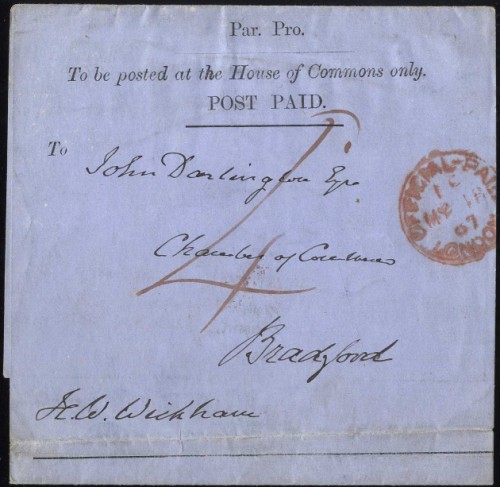 Par. Pro.
To be posted at the House of Commons only.
POST PAID.
To
John Darlington Esqre
Chamber of Commerce
4
Bradford
H.W. Wickham
OFFICIAL-PAID
MY 18
67
LONDON